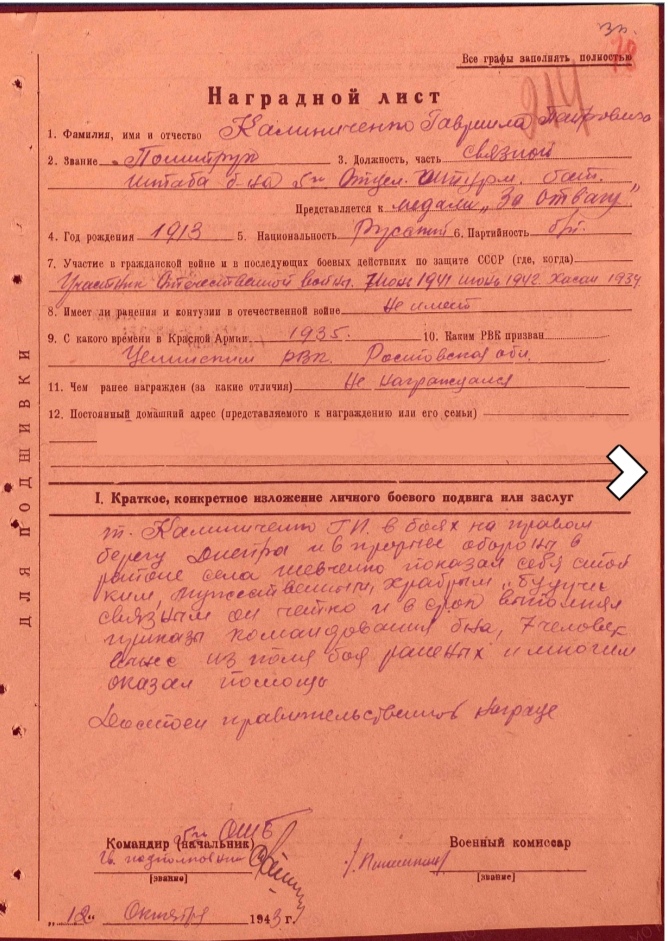 Все графы заполнять полностью
78
214
Наградной лист
1. Фамилия, имя и отчество Калиниченко Гавриила
2. Звание Политрук 3. Должность, часть связной
штаба б-на 5го Отдел. Штурм. бат.
Представляется к медали „За отвагу"
4. Год рождения 1913 5. Национальность Русский 6. Партийность б/п.
7. Участие в гражданской войне и в последующих боевых действиях по защите СССР (где, когда)
Участник Отечественной войны. Июнь 1941 июнь 1942. Хасан
8. Имеет ли ранения и контузии в отечественной войне Не имеет
9. С какого времени в Красной Армии 1935. 10. Каким РВК призван
РВК. Ростовская обл.
11. Чем ранее награжден (за какие отличия) Не награждался
12. Постоянный домашний адрес (представляемого к награждению или его семьи)
ДЛЯ ПОДШИВКИ
I. Краткое, конкретное изложение личного боевого подвига или заслуг
т. Калиниченко Г.П. в боях на правом
берегу Днепра и в прорыве обороны в
районе села Шевченко показал себя стой
ким, мужественным, храбрым. Будучи
связным он четко и в срок выполнял
приказы командования б-на, 7 человек
вынес из поля боя раненых и многим
оказал помощь
Достоин правительственной награде
Командир (начальник) 5го ОШБ Военный комиссар
Гв. подполковник
(звание) (звание)
„12" Октября 1943 г.